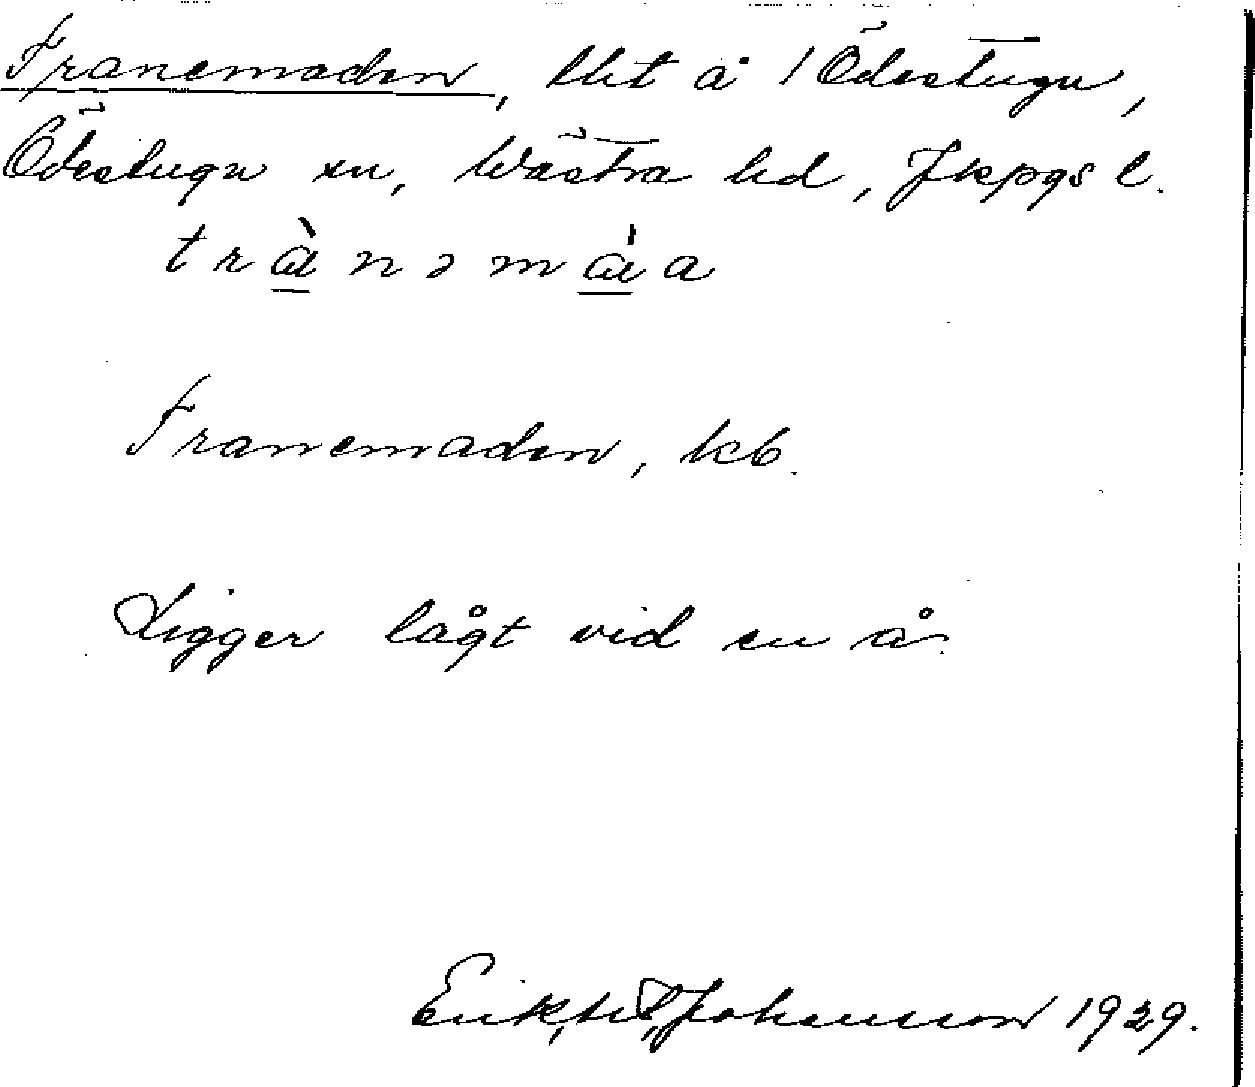 Tranemaden, lht å 1 Ödestugu,
Ödestugu sn, Västra hd, Jkpgs l.
trànəmàa
Tranemaden, kb.
Ligger lågt vid en å.
Erik Johansson 1929.